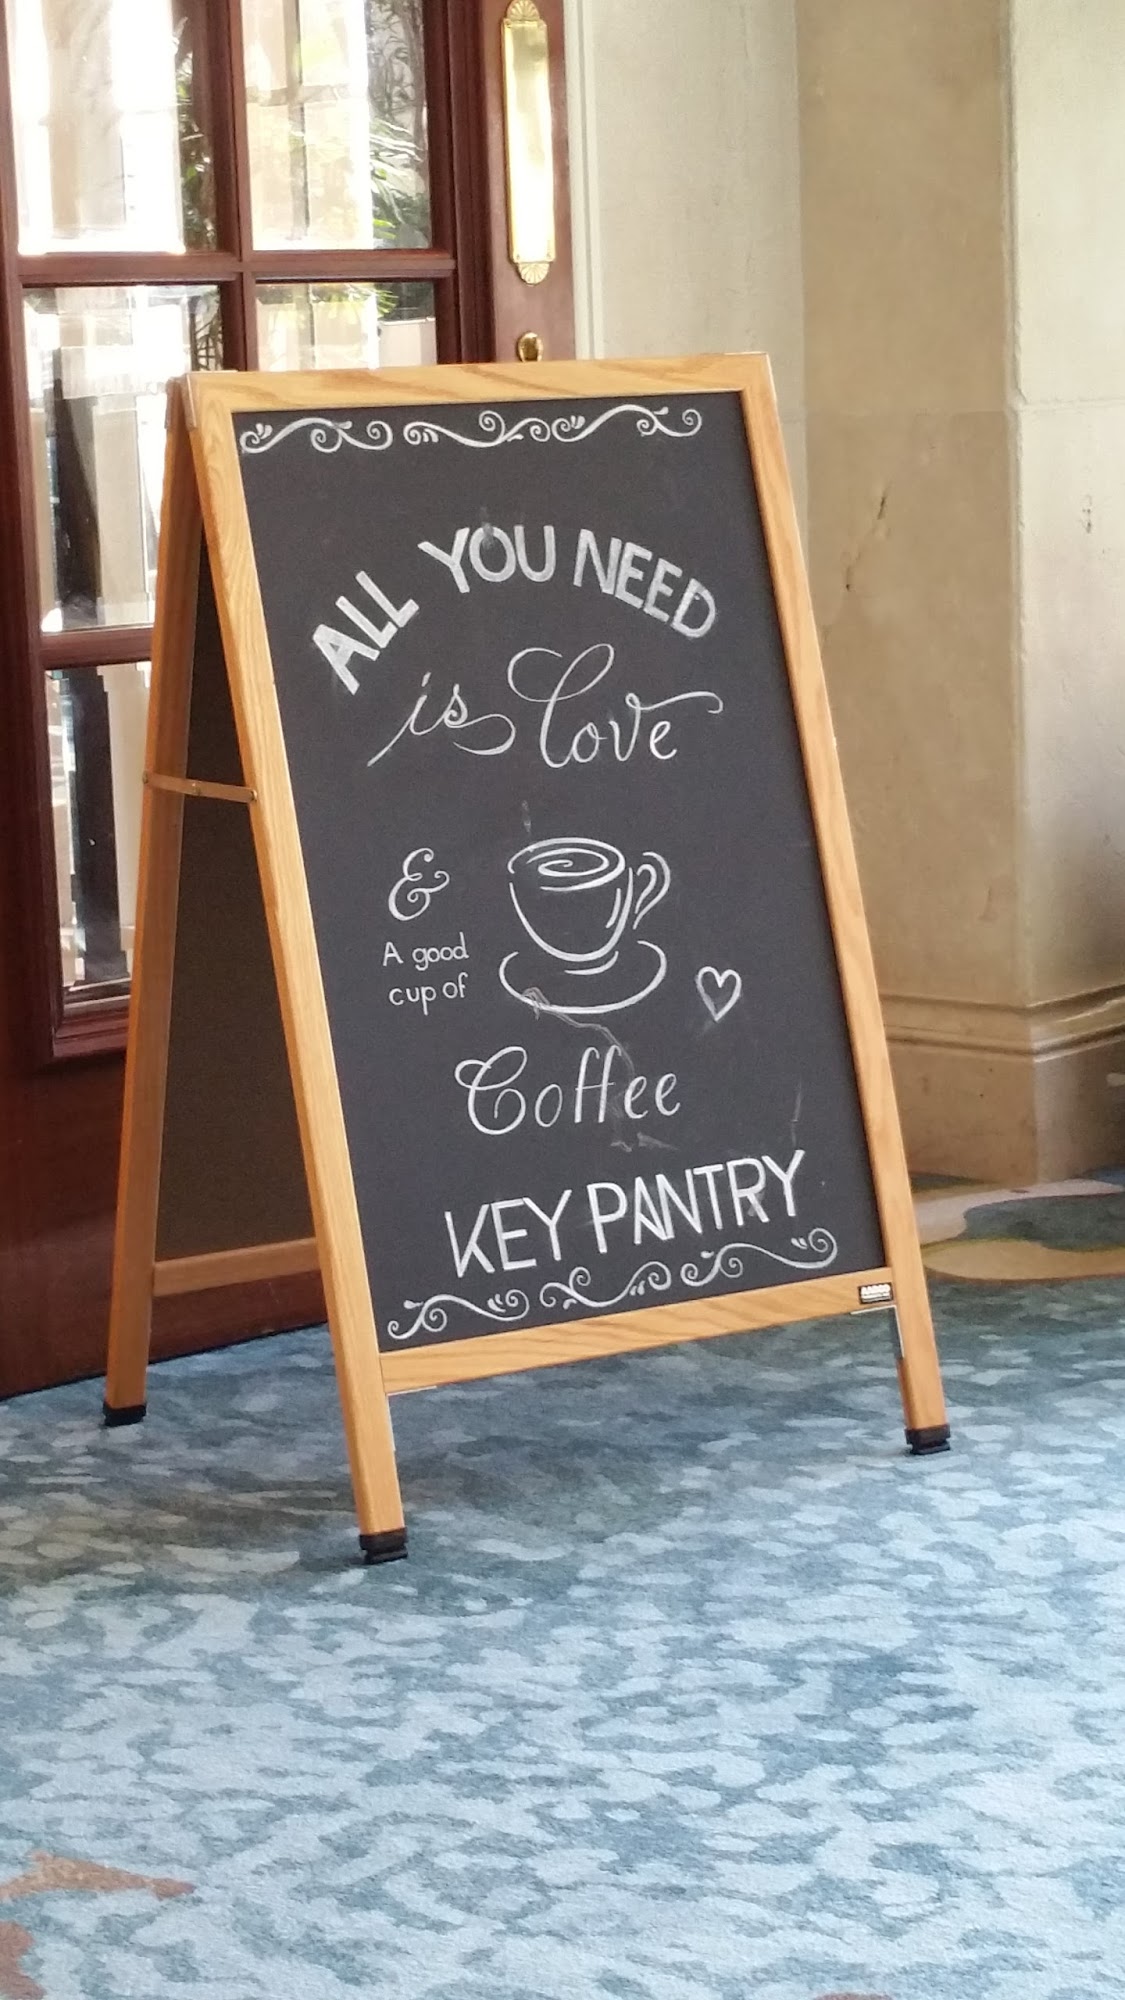 ALL YOU NEED
is Love
&
A good
cup of
Coffee
KEY PANTRY
AARCO